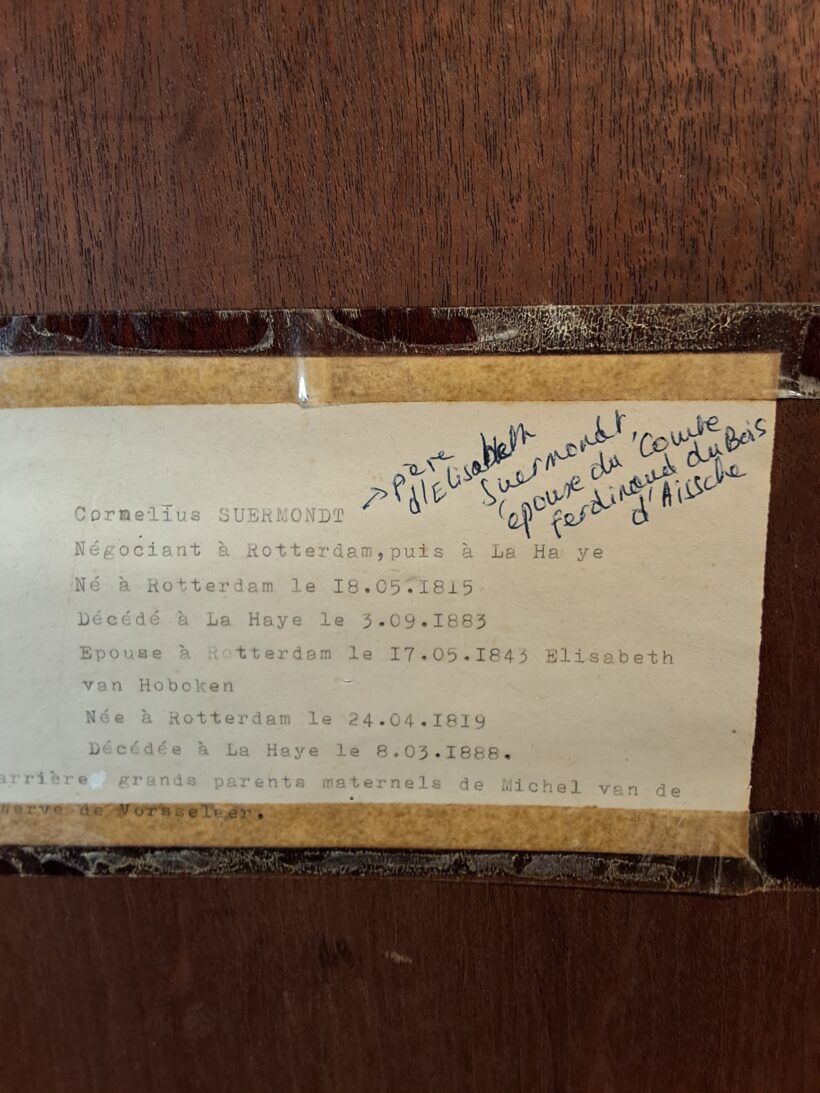 → père
d'Elisabeth
Suermondt,
épouse du Comte
Ferdinand du Bois
d'Aissche
Cornelius SUERMONDT
Négociant à Rotterdam,puis à La Ha ye
Né à Rotterdam le I8.05.I8I5
Décédé à La Haye le 3.09.I883
Epouse à Rotterdam le I7.05.I843 Elisabeth
van Hoboken
Née à Rotterdam le 24.04.I8I9
Décédée à La Haye le 8.03.I888.
arrière grands parents maternels de Michel van de
Werve de Vorsselaer.